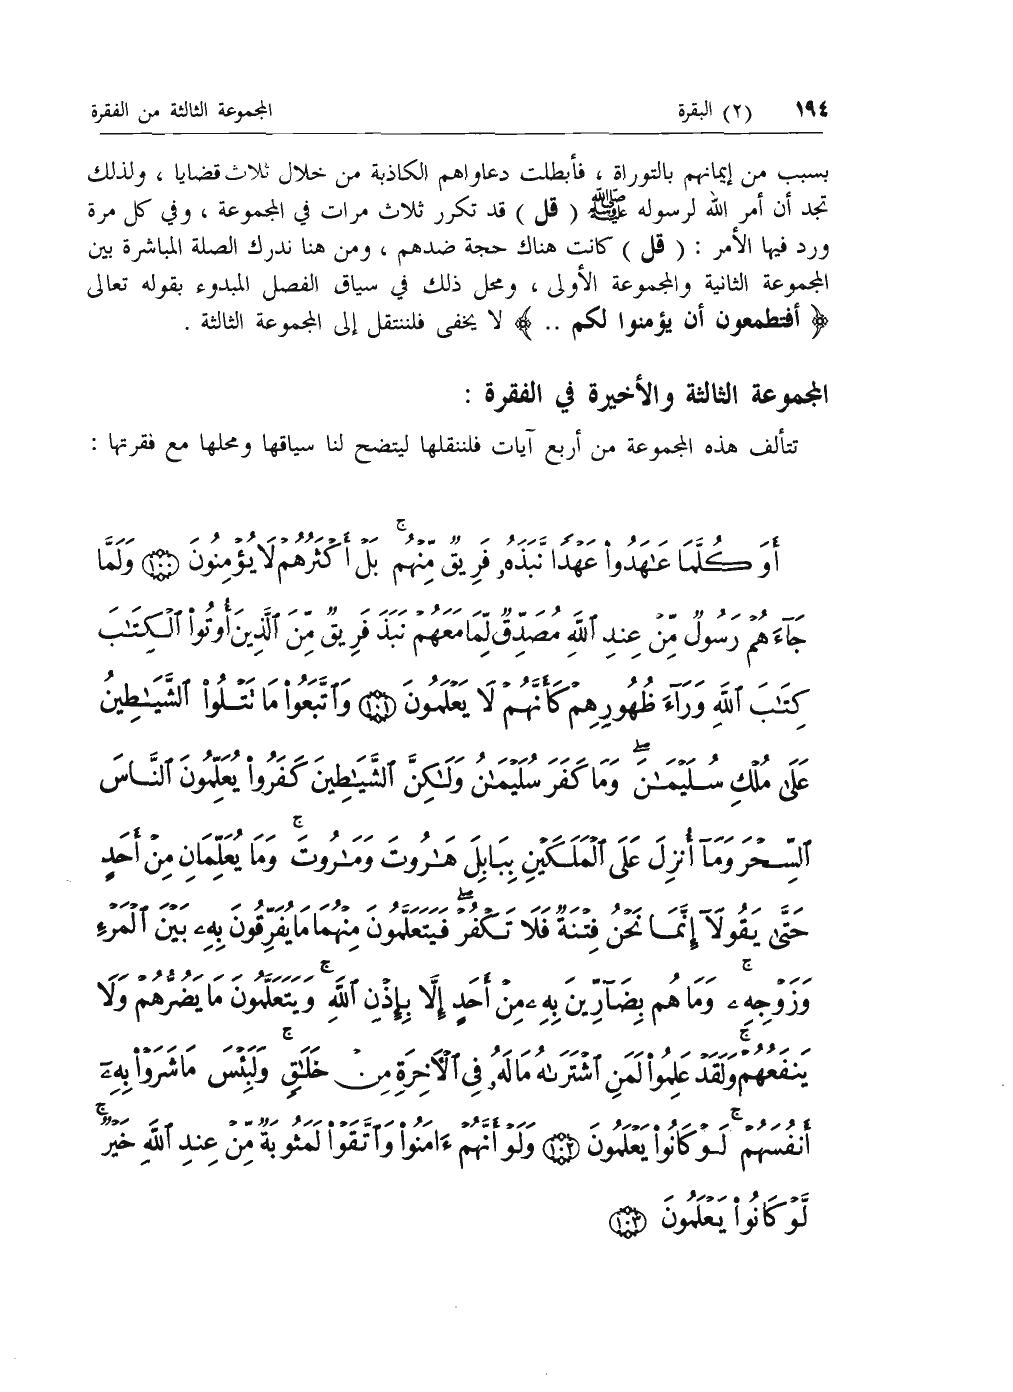 ١٩٤ (٢) البقرة المجموعة الثالثة من الفقرة
بسبب من إيمانهم بالتوراة ، فأبطلت دعاواهم الكاذبة من خلال ثلاث قضايا ، ولذلك
تجد أن أمر الله لرسوله ﷺ ( قل ) قد تكرر ثلاث مرات في المجموعة ، وفي كل مرة
ورد فيها الأمر : ( قل ) كانت هناك حجة ضدهم ، ومن هنا ندرك الصلة المباشرة بين
المجموعة الثانية والمجموعة الأولى ، ومحل ذلك في سياق الفصل المبدوء بقوله تعالى
﴿ أفتطمعون أن يؤمنوا لكم .. ﴾ لا يخفى فلننتقل إلى المجموعة الثالثة .
المجموعة الثالثة والأخيرة في الفقرة :
تتألف هذه المجموعة من أربع آيات فلننقلها ليتضح لنا سياقها ومحلها مع فقرتها :
أَوَكُلَّمَا عَٰهَدُوا۟ عَهْدًا نَّبَذَهُۥ فَرِيقٌ مِّنْهُم ۚ بَلْ أَكْثَرُهُمْ لَا يُؤْمِنُونَ ﴿١٠٠﴾ وَلَمَّا
جَآءَهُمْ رَسُولٌ مِّنْ عِندِ ٱللَّهِ مُصَدِّقٌ لِّمَا مَعَهُمْ نَبَذَ فَرِيقٌ مِّنَ ٱلَّذِينَ أُوتُوا۟ ٱلْكِتَٰبَ
كِتَٰبَ ٱللَّهِ وَرَآءَ ظُهُورِهِمْ كَأَنَّهُمْ لَا يَعْلَمُونَ ﴿١٠١﴾ وَٱتَّبَعُوا۟ مَا تَتْلُوا۟ ٱلشَّيَٰطِينُ
عَلَىٰ مُلْكِ سُلَيْمَٰنَ ۖ وَمَا كَفَرَ سُلَيْمَٰنُ وَلَٰكِنَّ ٱلشَّيَٰطِينَ كَفَرُوا۟ يُعَلِّمُونَ ٱلنَّاسَ
ٱلسِّحْرَ وَمَآ أُنزِلَ عَلَى ٱلْمَلَكَيْنِ بِبَابِلَ هَٰرُوتَ وَمَٰرُوتَ ۚ وَمَا يُعَلِّمَانِ مِنْ أَحَدٍ
حَتَّىٰ يَقُولَآ إِنَّمَا نَحْنُ فِتْنَةٌ فَلَا تَكْفُرْ ۖ فَيَتَعَلَّمُونَ مِنْهُمَا مَا يُفَرِّقُونَ بِهِۦ بَيْنَ ٱلْمَرْءِ
وَزَوْجِهِۦ ۚ وَمَا هُم بِضَآرِّينَ بِهِۦ مِنْ أَحَدٍ إِلَّا بِإِذْنِ ٱللَّهِ ۚ وَيَتَعَلَّمُونَ مَا يَضُرُّهُمْ وَلَا
يَنفَعُهُمْ ۚ وَلَقَدْ عَلِمُوا۟ لَمَنِ ٱشْتَرَىٰهُ مَا لَهُۥ فِى ٱلْـَٔاخِرَةِ مِنْ خَلَٰقٍ ۚ وَلَبِئْسَ مَا شَرَوْا۟ بِهِۦٓ
أَنفُسَهُمْ ۚ لَوْ كَانُوا۟ يَعْلَمُونَ ﴿١٠٢﴾ وَلَوْ أَنَّهُمْ ءَامَنُوا۟ وَٱتَّقَوْا۟ لَمَثُوبَةٌ مِّنْ عِندِ ٱللَّهِ خَيْرٌ ۚ
لَّوْ كَانُوا۟ يَعْلَمُونَ ﴿١٠٣﴾